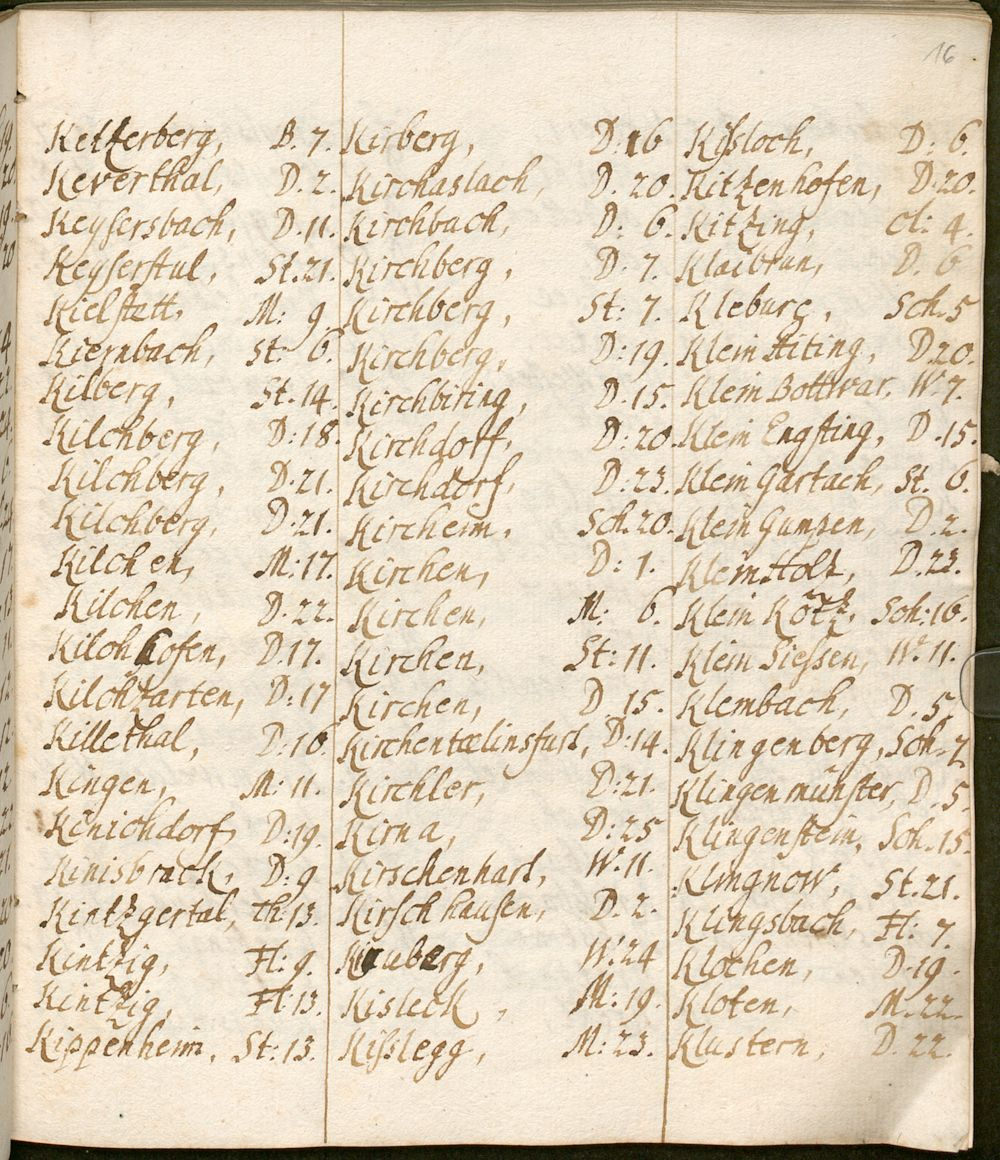 16
Ketzerberg, B. 7.
Keverthal, D. 2.
Keysersbach, D. 11.
Keyserstul, St. 21.
Kielstett, M: 9.
Kiernbach, St. 6.
Kilberg, St. 14.
Kilchberg, D: 18.
Kilchberg, D. 21.
Kilchberg, D. 21.
Kilchen, M: 17.
Kilchen, D. 22.
Kilchhofen, D. 17.
Kilchzarten, D: 17
Killethal, D: 10.
Kingen, M: 11.
Kinichdorf, D: 19.
Kinisbruck, D: 9
Kintzgertal, th. 13.
Kintzig, Fl: 9.
Kintzig, Fl: 13.
Kippenheim, St: 13.
Kirberg, D: 16
Kirchaslach, D. 20.
Kirchbach, D: 6.
Kirchberg, D. 7.
Kirchberg, St: 7.
Kirchberg, D: 19.
Kirchbiring, D. 15.
Kirchdorf, D: 20.
Kirchdorf, D. 23.
Kircheim, Sch. 20.
Kirchen, D: 1.
Kirchen, M: 6.
Kirchen, St: 11.
Kirchen, D. 15.
Kirchentœlinsfurt, D: 14.
Kirchler, D: 21.
Kirna, D: 25
Kirschenhart, W. 11.
Kirschhausen, D. 2.
W. 24
Kisleck, M: 19.
Kißlegg, M: 23.
Kisloch, D: 6.
Kitzenhofen, D. 20.
Kitzing, cl: 4.
Klaibtan, D. 6
Kleburg, Sch. 5
Klein Aiting, D. 20.
Klein Bottwar, W. 7.
Klein Engsting, D. 15.
Klein Gartach, St. 6.
Klein Gumpen, D. 2.
Klein Holz, D. 23.
Klein Kötz, Sch. 16.
Klein Siessen, W. 11.
Klembach, D. 5,
Klingenberg, Sch. 7
Klingenmünster, D. 5.
Klingenstein, Sch. 15.
Klingnow, St. 21.
Klingsbach, Fl: 7.
Klochen, D. 19.
Kloten, M. 22.
Klustern, D. 22.